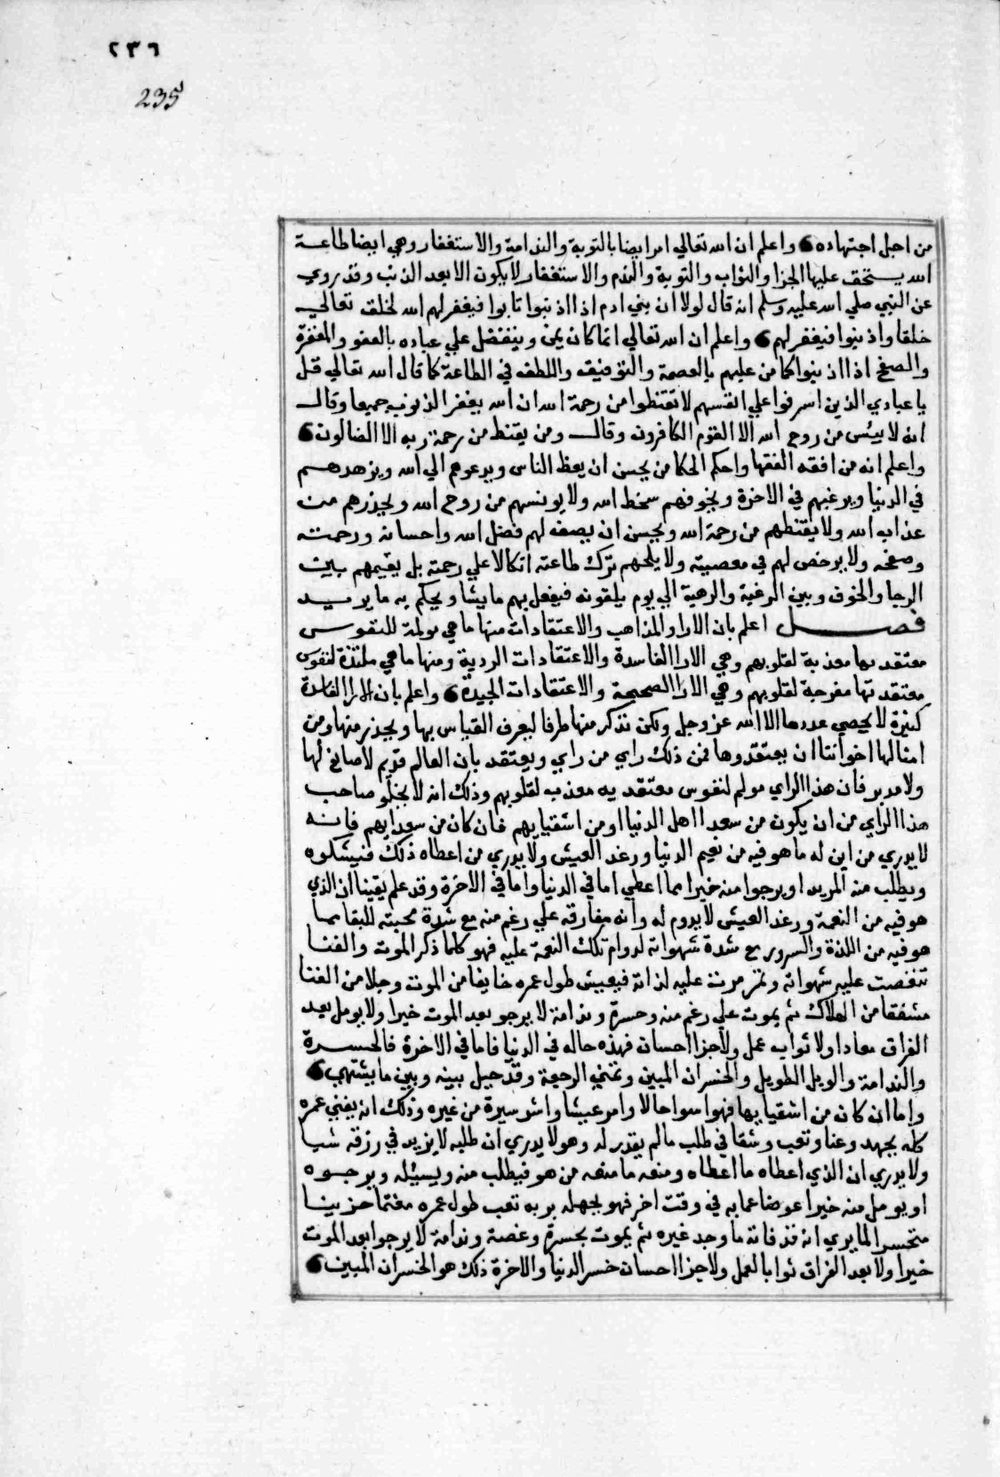 ٢٣٦
235
من اجل اجتهاده واعلم ان الله تعالي امر ايضا بالتوبة والندامة والاستغفار وهي ايضا طاعة
الله يستحق عليها الجزا والثواب والتوبة والندم والاستغفار لا يكون الا بعد الذنب وقد روي
عن النبي صلي الله عليه وسلم انه قال لولا ان بني ادم اذا اذنبوا تابوا فيغفر لهم الله لخلق تعالي
خلقا واذنبوا فيغفر لهم واعلم ان الله تعالي انما كان يمن ويتفضل علي عباده بالعفو والمغفرة
والصفح اذا اذنبوا كما من عليهم بالعصمة والتوفيق واللطف في الطاعة كما قال الله تعالي قل
يا عبادي الذين اسرفوا علي انفسهم لا تقنطوا من رحمة الله ان الله يغفر الذنوب جميعا وقال
انه لا ييئس من روح الله الا القوم الكافرون وقال ومن يقنط من رحمة ربه الا الضالون
واعلم انه من افقه الفقها واحكم الحكما من يحسن ان يعظ الناس ويدعوهم الي الله ويزهدهم
في الدنيا ويرغبهم في الاخرة ويخوفهم سخط الله ولا يونسهم من روح الله ويحذرهم من
عذاب الله ولا يقنطهم من رحمة الله ويحسن ان يصف لهم فضل الله واحسانه ورحمته
وصفحه ولا يرخص لهم في معصيته ولا ترك طاعته اتكالا علي رحمته بل يقيمهم بين
الرجا والخوف وبين الرغبة والرهبة الي يوم يلقونه فيفعل بهم ما يشا ويحكم به ما يريد
فصل اعلم بان الارا والمذاهب والاعتقادات منها ما هي مولمة للنفوس
معتقديها معذبة لقلوبهم وهي الارا الفاسدة والاعتقادات الردية ومنها ما هي ملتذة لنفوس
معتقديها مفرحة لقلوبهم وهي الارا الصحيحة والاعتقادات الجيدة واعلم بان الارا الفاسدة
كثيرة لا يحصي عددها الا الله عز وجل ولكن نذكر منها طرفا ليعرف القياس بها ويحذر منها ومن
امثالها اخواننا ان يعتقدوها فمن ذلك راي من راي ويعتقد بان العالم قديم لا صانع لها
ولا مدبر فان هذا الراي مولم لنفوس معتقديه معذب لقلوبهم وذلك انه لا يخلو صاحب
هذا الراي من ان يكون من سعدا اهل الدنيا او من اشقيايهم فان كان من سعدايهم فانه
لا يدري من اين له ما هو فيه من نعيم الدنيا ورغد العيش ولا يدري من اعطاه ذلك فيشكره
ويطلب منه المزيد او يرجوا منه خيرا مما اعطي اما في الدنيا واما في الاخرة وقد علم يقينا ان الذي
هو فيه من النعمة ورغد العيش لا يدوم له وانه مفارقه علي رغم منه مع شدة محبته للبقا بما
هو فيه من اللذة والسرور مع شدة شهواته لدوام تلك النعمة عليه فهو كلما ذكر الموت والفنا
تنغصت عليه شهواته وتمرمرت عليه لذاته فيعيش طول عمره خايفا من الموت وجلا من الفنا
مشفقا من الهلاك ثم يموت علي رغم منه وحسرة وندامة لا يرجو بعد الموت خيرا ولا يومل بعد
الفراق معادا ولا ثواب عمل ولا جزا احسان فهذه حاله في الدنيا فاما في الاخرة فالحسرة
والندامة والويل الطويل والخسران المبين وتمني الرجعة وقد حيل بينه وبين ما يشتهي
واما ان كان من اشقيايها فهو اسوا حالا وامر عيشا واشر سيرة من غيره وذلك انه يفني عمره
كله بجهد وعنا وتعب وشقا في طلب ما لم يقدر له وهو لا يدري ان طلبه لا يزيد في رزقه شيا
ولا يدري ان الذي اعطاه ما اعطاه ومنعه ما منعه من هو فيطلب منه ويسيئله ويرجوه
او يومل منه خيرا عوضا عما به في وقت اخر فهو لجهله بربه تعب طول عمره مغتما حزينا
متحسرا لما يري انه قد فاته ما وجد غيره ثم يموت بحسرة وغصة وندامة لا يرجوا بعد الموت
خيرا ولا بعد الفراق ثوابا لعمل ولا جزا احسان خسر الدنيا والاخرة ذلك هو الخسران المبين